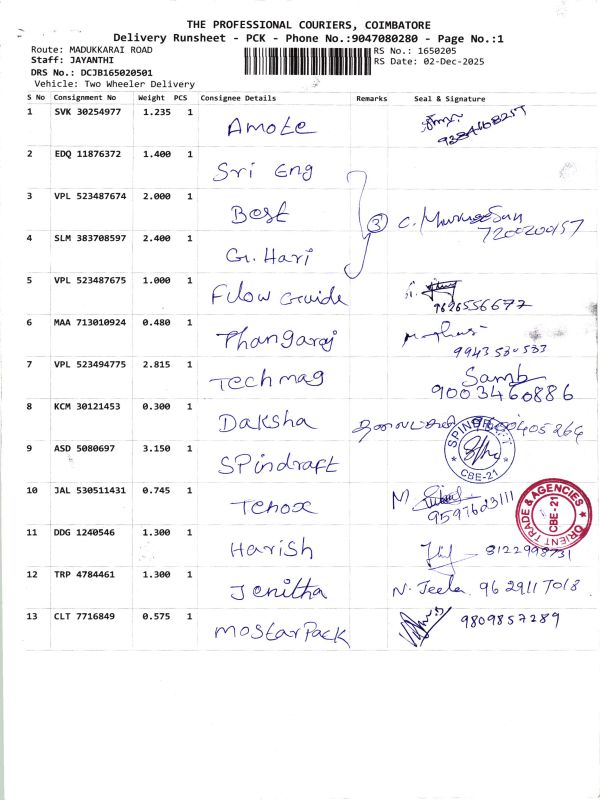 THE PROFESSIONAL COURIERS, COIMBATORE
Delivery Runsheet - PCK - Phone No.:9047080280 - Page No.:1
Route: MADUKKARAI ROAD RS No.: 1650205
Staff: JAYANTHI RS Date: 02-Dec-2025
DRS No.: DCJB165020501
Vehicle: Two Wheeler Delivery
S No Consignment No Weight PCS Consignee Details Remarks Seal & Signature
1 SVK 30254977 1.235 1 Amote
2 EDQ 11876372 1.400 1 Sri Eng
3 VPL 523487674 2.000 1 Best 3 C. Murugesan
7200200157
4 SLM 383708597 2.400 1 G. Hari
5 VPL 523487675 1.000 1 Flow Guide
9626556677
6 MAA 713010924 0.480 1 Thangaraj
9943530533
7 VPL 523494775 2.815 1 Techmag Samb
9003460886
8 KCM 30121453 0.300 1 Daksha
9 ASD 5080697 3.150 1 Spindraft
SPINDRAFT
CBE-21
10 JAL 530511431 0.745 1 Tenox M
ORIENT TRADE & AGENCIES
CBE-21
11 DDG 1240546 1.300 1 Harish 8122998731
12 TRP 4784461 1.300 1 Jenitha N. Jeela 9629117018
13 CLT 7716849 0.575 1 MostarPack 9809857289